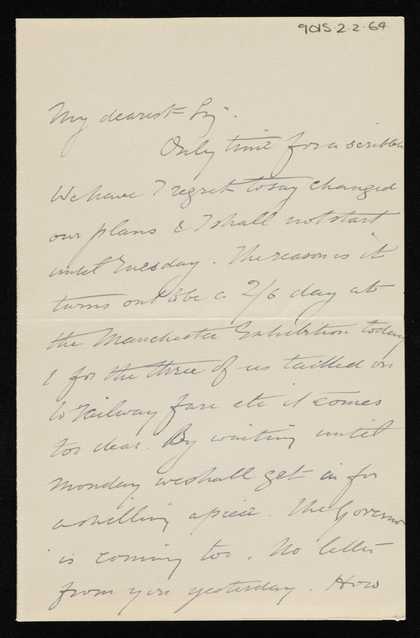 9015-2-2-64
My dearest
Only time for a scribble
We have I regret to say changed
our plans & I shall not start
until Tuesday. The reason is it
turns out to be a 2/6 day at
the Manchester Exhibition today
& for the three of us tailed on
to railway fare etc it comes
too dear. By waiting until
Monday we shall get in for
a shilling apiece. The Governor
is coming too. No letter
from you yesterday. How